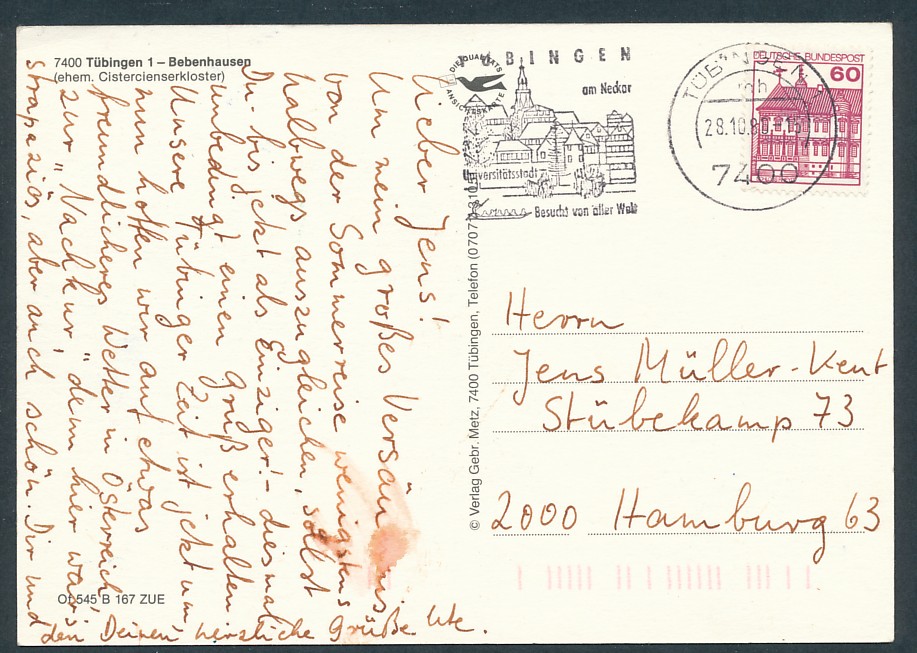 7400 Tübingen 1 – Bebenhausen
(ehem. Cistercienserkloster)
DIE QUALITÄTS
ANSICHTSKARTE
TÜBINGEN
am Neckar
Universitätsstadt
Besucht von aller Welt
TÜBINGEN
mh
28.10.80
7400
DEUTSCHE BUNDESPOST
60
Lieber Jens!
Um mein großes Versäumnis
von der Sommerreise wenigstens
halbwegs auszugleichen, sollst
Du – bis jetzt als Einziger! – diesmal
unbedingt einen Gruß erhalten.
Unsere Tübinger Zeit ist jetzt um,
nun hoffen wir auf etwas
freundlicheres Wetter in Österreich,
zur "Nachkur", denn hier war's
strapaziös, aber auch schön. Dir und
den Deinen herzliche Grüße Ute.
© Verlag Gebr. Metz, 7400 Tübingen, Telefon (0707
Herrn
Jens Müller-Kent
Stübekamp 73
2000 Hamburg 63
545 B 167 ZUE